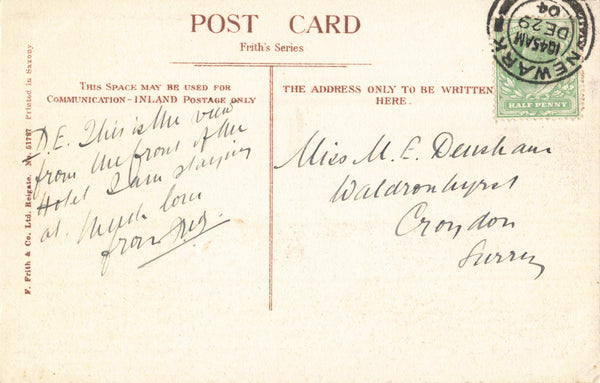 POST CARD
Frith's Series
THIS SPACE MAY BE USED FOR
COMMUNICATION-INLAND POSTAGE ONLY
D.E. This is the view
from the front of the
Hotel I am staying
at. Much love
from
THE ADDRESS ONLY TO BE WRITTEN
HERE.
Miss M. E. Densham
Waldronhyrst
Croydon
Surrey
NEWARK
1045AM
DE 29
04
HALF PENNY
F. Frith & Co. Ltd. Reigate. No. 51797 Printed in Saxony